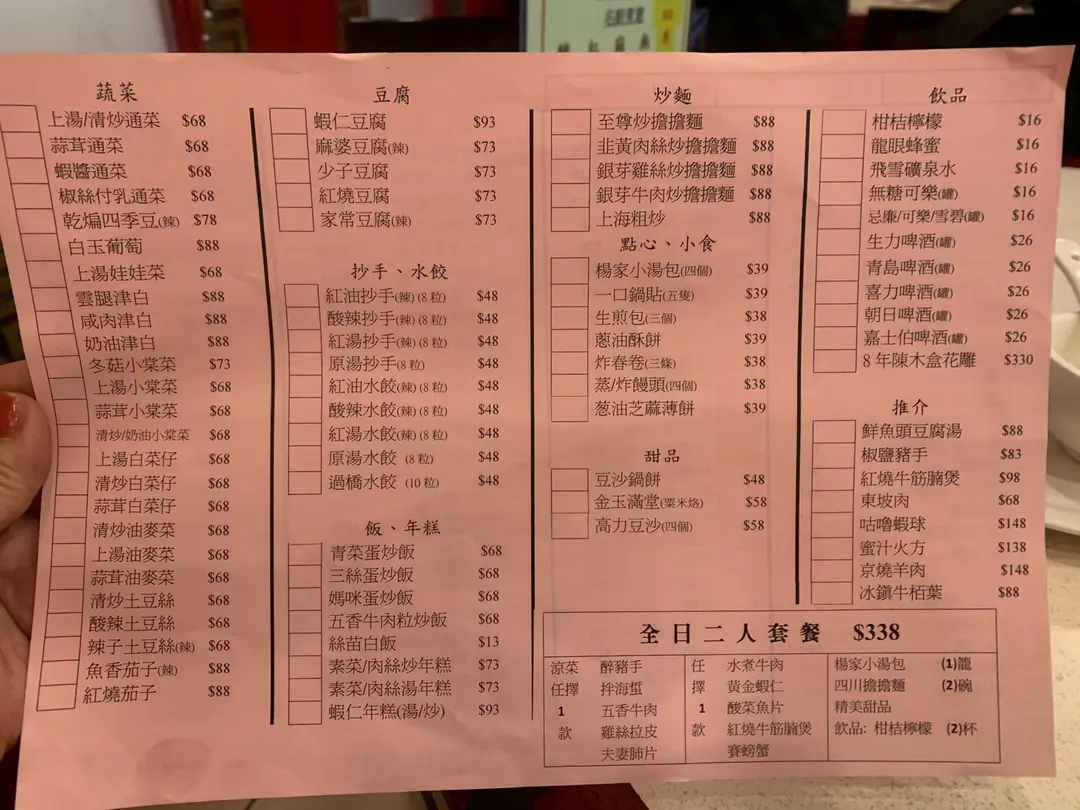 蔬菜
上湯/清炒通菜 $68
蒜茸通菜 $68
蝦醬通菜 $68
椒絲付乳通菜 $68
乾煸四季豆(辣) $78
白玉葡萄 $88
上湯娃娃菜 $68
雲腿津白 $88
咸肉津白 $88
奶油津白 $88
冬菇小棠菜 $73
上湯小棠菜 $68
蒜茸小棠菜 $68
清炒/奶油小棠菜 $68
上湯白菜仔 $68
清炒白菜仔 $68
蒜茸白菜仔 $68
清炒油麥菜 $68
上湯油麥菜 $68
蒜茸油麥菜 $68
清炒土豆絲 $68
酸辣土豆絲 $68
辣子土豆絲(辣) $68
魚香茄子(辣) $88
紅燒茄子 $88
豆腐
蝦仁豆腐 $93
麻婆豆腐(辣) $73
少子豆腐 $73
紅燒豆腐 $73
家常豆腐(辣) $73
抄手、水餃
紅油抄手(辣)(8粒) $48
酸辣抄手(辣)(8粒) $48
紅湯抄手(辣)(8粒) $48
原湯抄手(8粒) $48
紅油水餃(辣)(8粒) $48
酸辣水餃(辣)(8粒) $48
紅湯水餃(辣)(8粒) $48
原湯水餃 (8粒) $48
過橋水餃 (10粒) $48
飯、年糕
青菜蛋炒飯 $68
三絲蛋炒飯 $68
媽咪蛋炒飯 $68
五香牛肉粒炒飯 $68
絲苗白飯 $13
素菜/肉絲炒年糕 $73
素菜/肉絲湯年糕 $73
蝦仁年糕(湯/炒) $93
炒麵
至尊炒擔擔麵 $88
韭黃肉絲炒擔擔麵 $88
銀芽雞絲炒擔擔麵 $88
銀芽牛肉炒擔擔麵 $88
上海粗炒 $88
點心、小食
楊家小湯包(四個) $39
一口鍋貼(五隻) $39
生煎包(三個) $38
蔥油酥餅 $39
炸春卷(三條) $38
蒸/炸饅頭(四個) $38
葱油芝蔴薄餅 $39
甜品
豆沙鍋餅 $48
金玉滿堂(粟米烙) $58
高力豆沙(四個) $58
飲品
柑桔檸檬 $16
龍眼蜂蜜 $16
飛雪礦泉水 $16
無糖可樂(罐) $16
忌廉/可樂/雪碧(罐) $16
生力啤酒(罐) $26
青島啤酒(罐) $26
喜力啤酒(罐) $26
朝日啤酒(罐) $26
嘉士伯啤酒(罐) $26
8年陳木盒花雕 $330
推介
鮮魚頭豆腐湯 $88
椒鹽豬手 $83
紅燒牛筋腩煲 $98
東坡肉 $68
咕嚕蝦球 $148
蜜汁火方 $138
京燒羊肉 $148
冰鎮牛栢葉 $88
全日二人套餐 $338
涼菜 醉豬手 任 水煮牛肉 楊家小湯包 (1)籠
任擇 拌海蜇 擇 黃金蝦仁 四川擔擔麵 (2)碗
1 五香牛肉 1 酸菜魚片 精美甜品
款 雞絲拉皮 款 紅燒牛筋腩煲 飲品: 柑桔檸檬 (2)杯
夫妻肺片 賽螃蟹